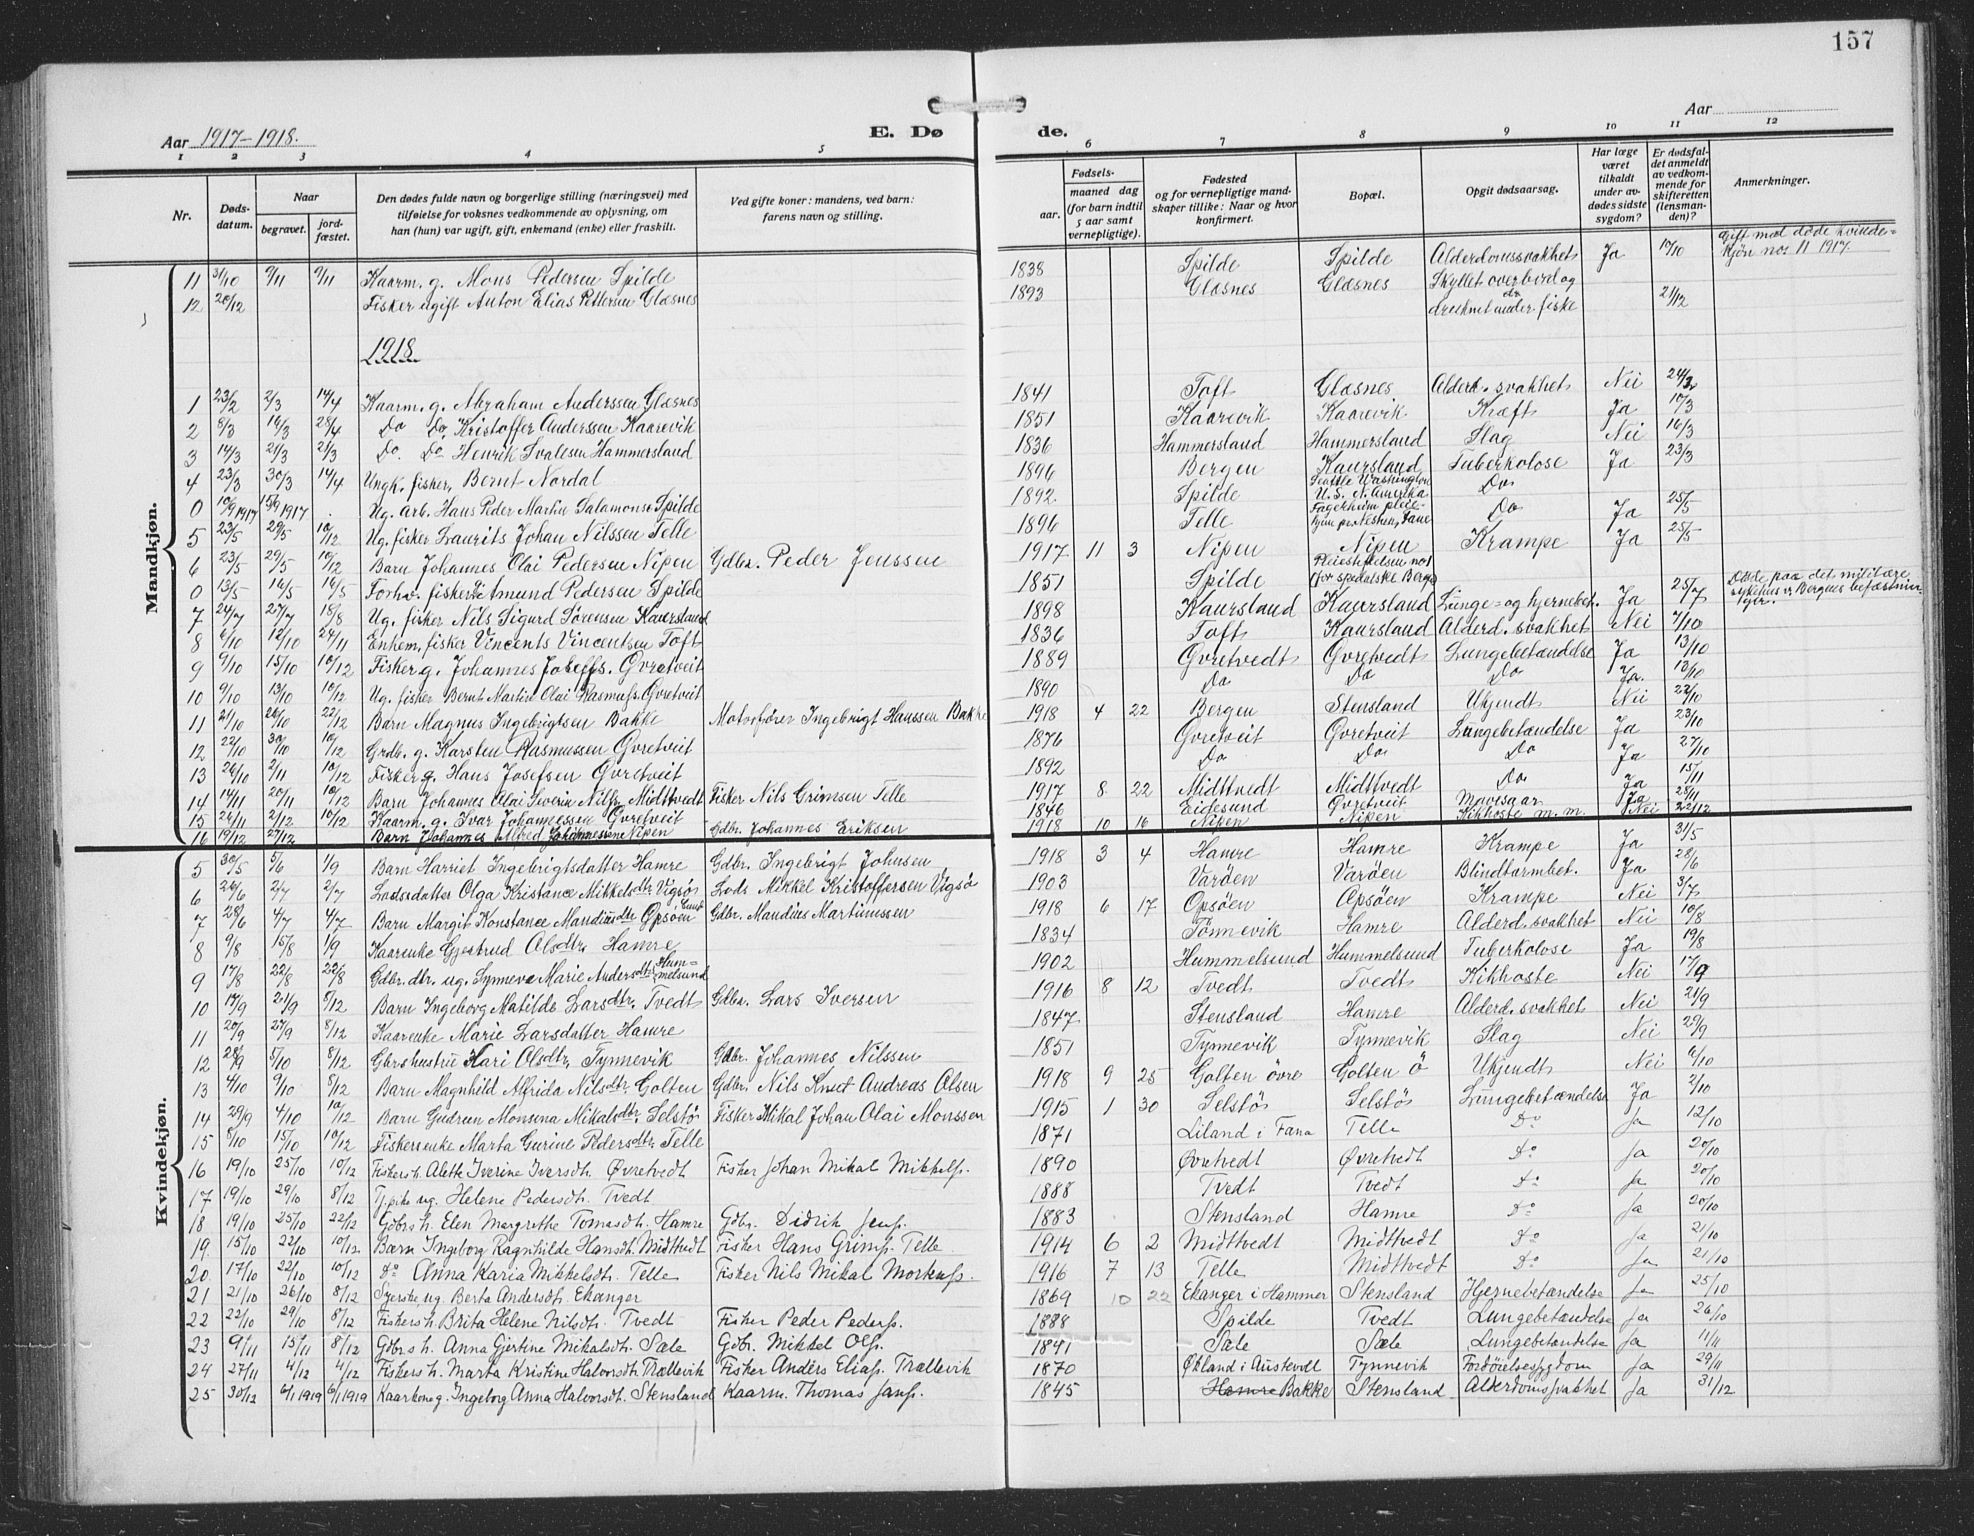 157
Aar 1917-1918.
E. Dø
de.
Aar
1 2 3 4 5 6 7 8 9 10 11 12
Nr.
Døds-
datum.
Naar
begravet.
jord-
fæstet.
Den dødes fulde navn og borgerlige stilling (næringsvei) med
tilføielse for voksnes vedkommende av oplysning, om
han (hun) var ugift, gift, enkemand (enke) eller fraskilt.
Ved gifte koner: mandens, ved barn:
farens navn og stilling.
Fødsels-
aar.
maaned dag
(for barn indtil
5 aar samt
vernepligtige).
Fødested
og for vernepligtige mand-
skaper tillike: Naar og hvor
konfirmert.
Bopæl.
Opgit dødsaarsag.
Har læge
været
tilkaldt
under av-
dødes sidste
sygdom?
Er dødsfal-
det anmeldt
av vedkom-
mende for
skifteretten
(lensman-
den)?
Anmerkninger.
Mandkjøn.
11 31/10 9/11 9/11 Kaarm. g. Mons Pedersen Spilde 1838 Spilde Spilde Alderdomssvakhet Ja 17/10 Gift med døde kvinde-
kjøn no. 11 1917.
12 20/12 Fisker ugift Anton Elias Pettersen Glæsnes 1893 Glæsnes Glæsnes Skyllet overbord og 21/12
druknet under fiske
1918
1 23/2 2/3 14/4 Kaarm. g. Abraham Anderssen Glæsnes 1841 Toft Glæsnes Alderd. svakhet Nei
2 8/3 16/3 28/4 Do Do Kristoffer Anderssen Kaarevik 1851 Kaarevik Kaarevik Kræft Ja 10/3
3 14/3 21/3 21/3 Do. Do Henrik Hammersland 1836 Hammersland Hammersland Slag Nei 16/3
4 23/3 30/3 14/4 Ungk. fisker, Bernt Nordal 1896 Bergen Kaursland Tuberkolose Ja 23/3
0 10/9 1917 15/9 1917 Ug. Arb. Hans Peder Martin Salamons. Spilde 1892. Spilde Seattle Washington
U.S. N. Amerika Do
5 23/5 29/5 10/12 Ug. fisker Laurits Johan Nilssen Telle 1896 Telle Fagerheim pleie-
hjem pr Nesttun, Fane Do Ja 25/5
6 23/5 29/5 10/12 Barn Johannes Olai Pedersen Nipen Gdbr. Peder Jenssen 1917 11 3 Nipen Nipen Krampe Ja 25/5
0 13/5 16/5 16/5 Forhv. fisker Amund Pedersen Spilde 1851 Spilde Pleiestiftelsen no 1
(for spedalske Bergen)
7 24/7 27/7 18/8 Ug. fisker Nils Sigurd Sørensen Kaursland 1898 Kaursland Kaursland Lunge- og hjernebet. Ja 25/7 Døde paa det militære
sykehus v. Bergens befæstnin-
ger.
8 6/10 12/10 24/11 Enkem. fisker Vincents Vincentsen Toft 1836 Toft Kaursland Alderd. svakhet Nei 7/10
9 9/10 15/10 10/12 Fisker g. Johannes Joseffs. Øvretveit 1889 Øvretvedt Øvretvedt Lungebetændelse Ja 13/10
10 9/10 13/10 10/12 Ug. fisker Bernt Martin Olai Rasmuss. Øvretveit 1890 Do Do Do Ja. 13/10
11 21/10 26/10 22/12 Barn Magnus Ingebrigtsen Bakke Motorfører Ingebrigt Hanssen Bakke 1918 4 22 Bergen Stensland Ukjendt Nei 22/10
12 22/10 30/10 10/12 Grdb. g. Karsten Rasmussen Øvretveit 1876 Øvretveit Øvretveit Lungebetændelse Ja 23/10
13 26/10 2/11 10/12 Fisker g. Hans Josefsen Øvretveit 1892 Do Do Do Ja 27/10
14 14/11 20/11 10/12 Barn Johannes Olai Severin Nilss. Midttvedt Fisker Nils Grimsen Telle 1917 8 22 Midttvedt Midttvedt Do Ja 15/11
15 26/11 2/12 10/12 Kaarm. g. Ivar Johannessen Øvretveit 1846 Eidesund Øvretveit Mavesaar Ja 28/11
16 19/12 27/12 Barn Johannes Alfred Johannessen Nipen Gdbr. Johannes Eriksen 1918 10 16 Nipen Nipen Kikhoste m. m. Nei 22/12
Kvindekjøn.
5 30/5 5/6 1/9 Barn Harriet Ingebrigtsdatter Hamre Gdbr. Ingebrigt Johnsen 1918 3 4 Hamre Hamre Krampe Ja 31/5
6 26/6 2/7 2/7 Lodsdatter Olga Kristance Mikkelsdtr Vigsø Lods Mikkel Kristoffersen Vigsø 1903 Varøen Varøen Blindtarmbet. Ja 28/6
7 28/6 4/7 4/7 Barn Margit Konstance Mandiusdtr Opsøen Gdbr. Mandius Martinussen 1918 6 17 Opsøen Opsøen Krampe Nei 3/7
8 9/8 15/8 1/9 Kaarenke Gjertrud Olsdtr. Hamre 1834 Tønnevik Hamre Alderd. svakhet Nei 10/8
9 17/8 22/8 22/8 Gdbr. dtr. ug. Synneve Marie Andersdtr Hum-
melsund 1902 Hummelsund Hummelsund Tuberkolose Ja 19/8
10 17/9 21/9 8/12 Barn Ingeborg Matilde Larsdtr. Tvedt Gdbr. Lars Iversen 1916 8 12 Tvedt Tvedt Kikhoste Nei 17/9
11 20/9 27/9 8/12 Kaarenke Marie Larsdatter Hamre 1847 Stensland Hamre Alderd. svakhet Nei 21/9
12 28/9 5/10 8/12 Gbrs hustru Kari Olsdtr. Tynnevik Gdbr. Johannes Nilssen 1851 Tynnevik Tynnevik Slag Nei 29/9
13 4/10 9/10 8/12 Barn Magnhild Alfrida Nilsdtr. Golten Gdbr. Nils Knut Andreas Olsen 1918 9 25 Golten øvre Golten Ø Ukjendt Nei 6/10
14 29/9 4/10 10/12 Barn Gudrun Monsina Mikalsdtr. Selstø Fisker Mikal Johan Olai Monssen 1915 1 30 Selstø Selstø Lungebetændelse Ja 2/10
15 8/10 15/10 10/12 Fiskerenke Marta Gurine Pedersdtr. Telle 1871 Liland i Fana Telle Do Ja 12/10
16 19/10 25/10 10/12 Fiskersh. Alette Iverine Iversdt. Øvretvedt Fisker Johan Mikal Mikkels. 1890 Øvretvedt Øvretvedt Do Ja 20/10
17 19/10 29/10 8/12 Pike ug. Helene Pedersdt. Tvedt 1888 Tvedt Tvedt Do Ja 20/10
18 19/10 25/10 22/12 Gdbrs h. Elen Margrethe Tomasdt. Hamre Gdbr. Didrik Jens. 1883 Stensland Hamre Do Ja 20/10
19. 15/10 22/10 10/12 Barn Ingeborg Ragnhilde Hansdt. Midttvedt Fisker Hans Grims. Telle 1914 6 2 Midttvedt Midttvedt Do Ja 21/10
20. 17/10 22/10 10/12 Do Anna Karia Mikkelsdt. Telle Fisker Nils Mikal Morkuss. 1916 7 13 Telle Midttvedt Do Ja 21/10
21 21/10 26/10 8/12 Syerske ug. Berta Andersdt. Ekanger 1869 10 22 Ekanger i Hammer Stensland Hjernebetændelse Ja 25/10
22 22/10 29/10 8/12 Fiskersh. Brita Helene Nilsdt. Tvedt Fisker Peder Peders. 1888 Spilde Tvedt Lungebetændelse Ja 26/10
23 9/11 15/11 8/12 Gdbrs h. Anna Gjertine Mikalsdt. Sæle Gdbr. Mikkel Ols. 1891 Sæle Sæle Lungebetændelse Ja 11/11
24 27/11 4/12 4/12 Fiskers h. Marta Kristine Halvorsdt. Trællevik Fisker Anders Elias. Trællevik 1870 Økland i Austevoll Tynnevik Fordøielsessygdom Ja 29/11
25 30/12 6/1 1919 6/1 1919 Kaarkone g. Ingeborg Anna Halvorsdt. Stensland Kaarm. Thomas Jans. 1845 Hamre Bakke Stensland Alderdomssvakhet Ja 31/12